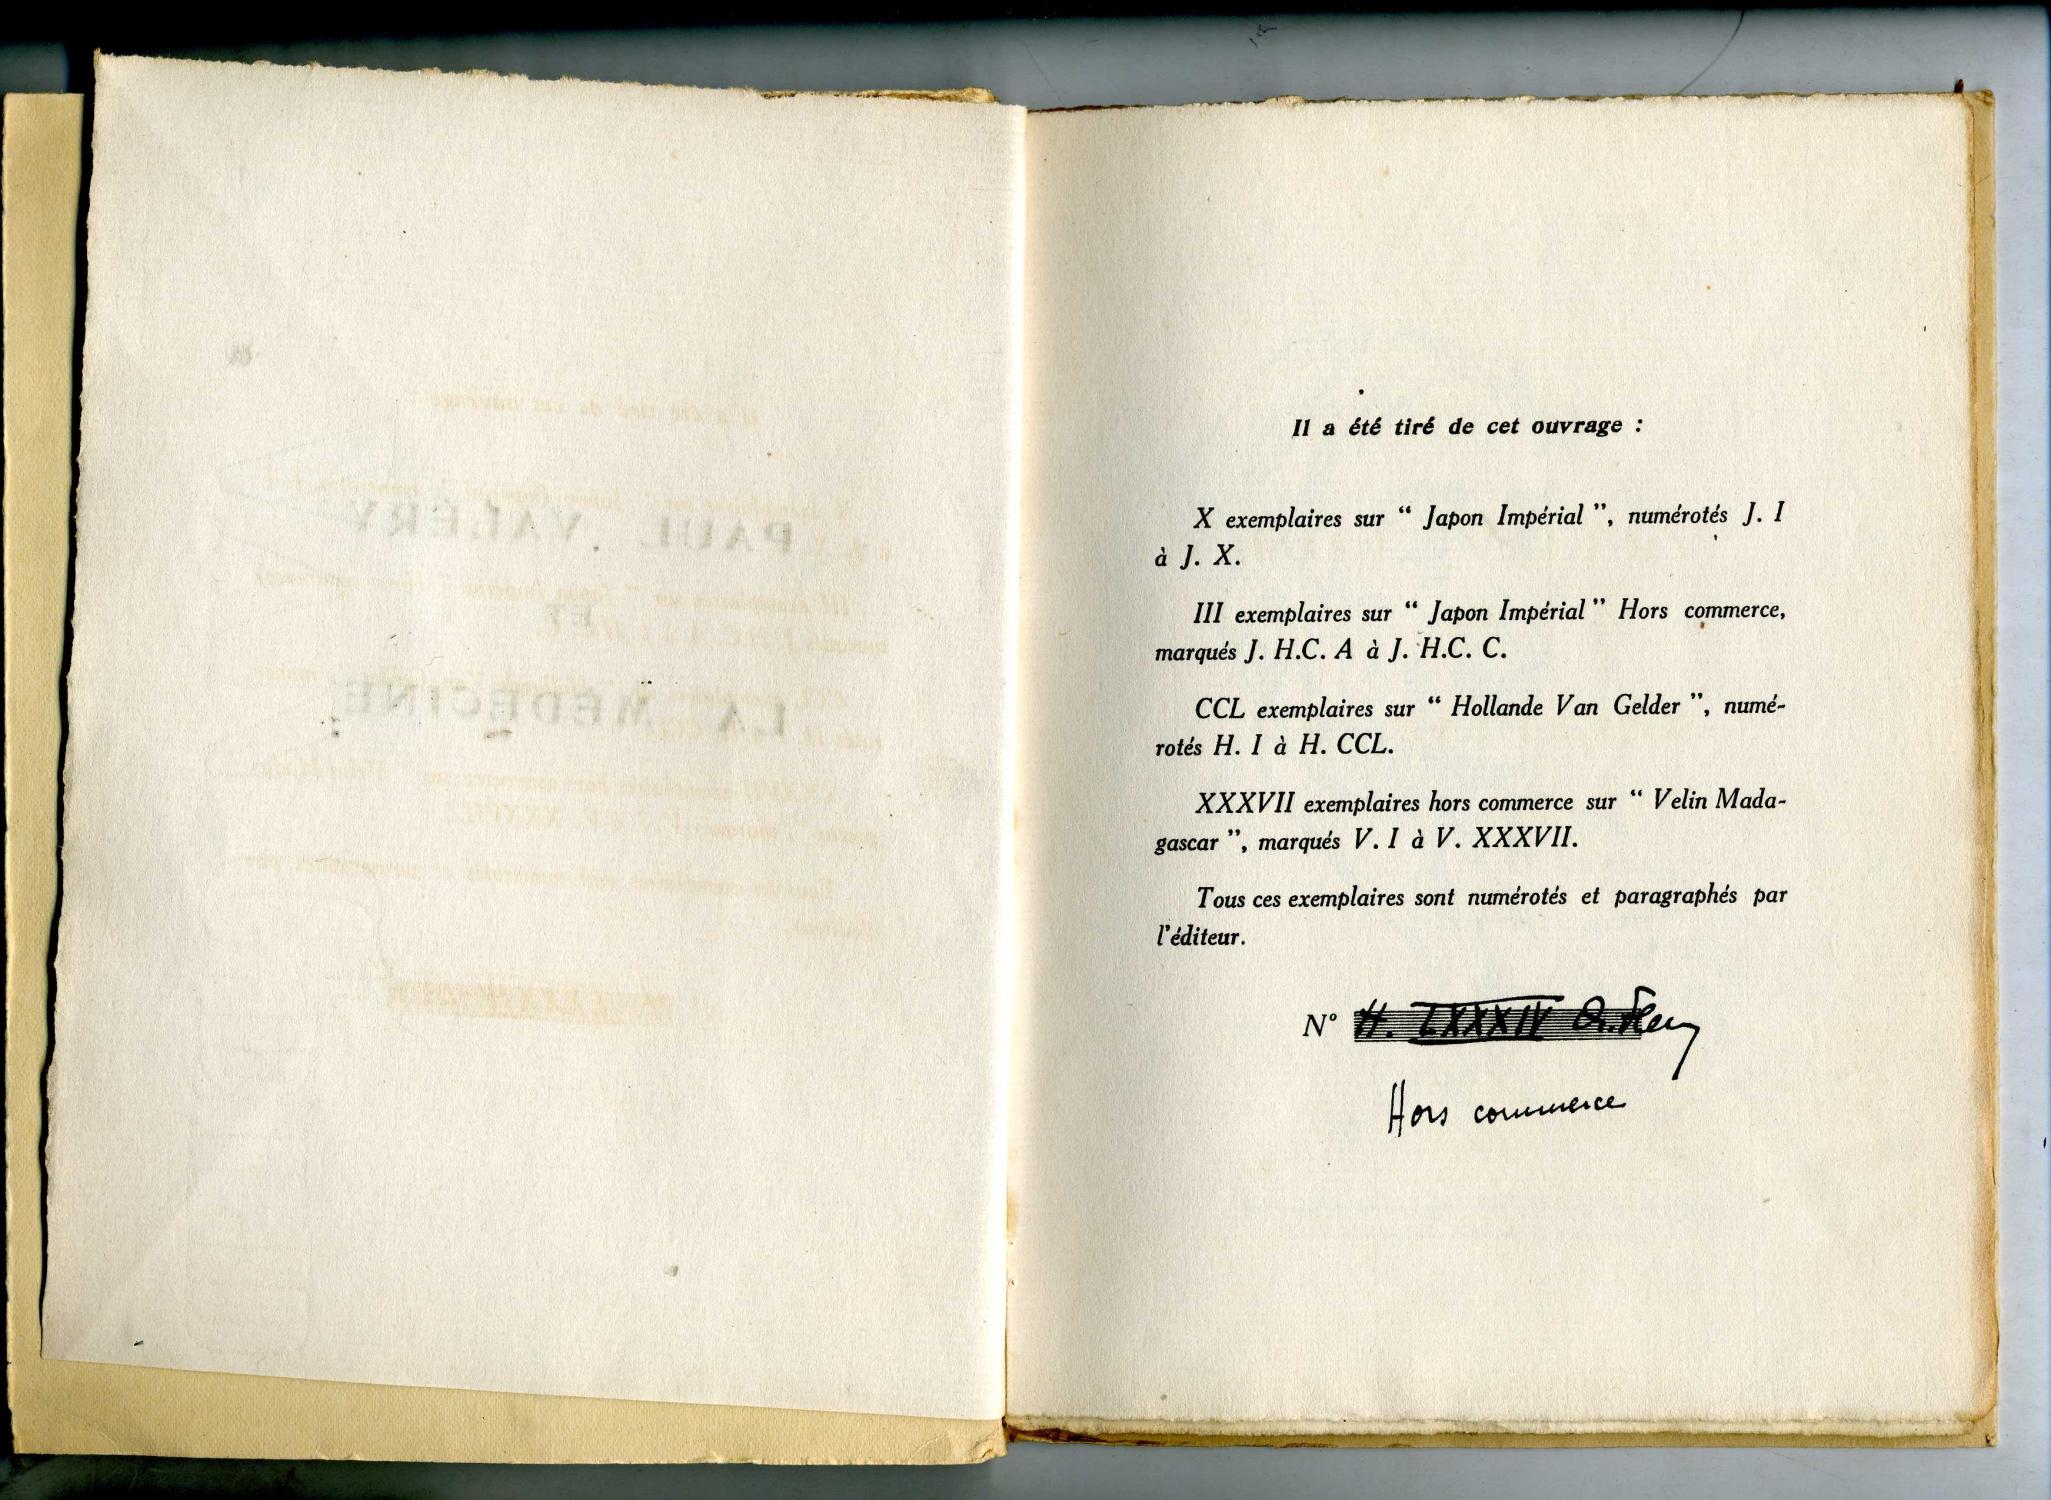 PAUL VALÉRY
ET
LA MÉDECINE
Il a été tiré de cet ouvrage :
X exemplaires sur “ Japon Impérial ”, numérotés J. I
à J. X.
III exemplaires sur “ Japon Impérial ” Hors commerce,
marqués J. H.C. A à J. H.C. C.
CCL exemplaires sur “ Hollande Van Gelder ”, numé-
rotés H. I à H. CCL.
XXXVII exemplaires hors commerce sur “ Velin Mada-
gascar ”, marqués V. I à V. XXXVII.
Tous ces exemplaires sont numérotés et paragraphés par
l'éditeur.
N° H. LXXXIV
Hors commerce